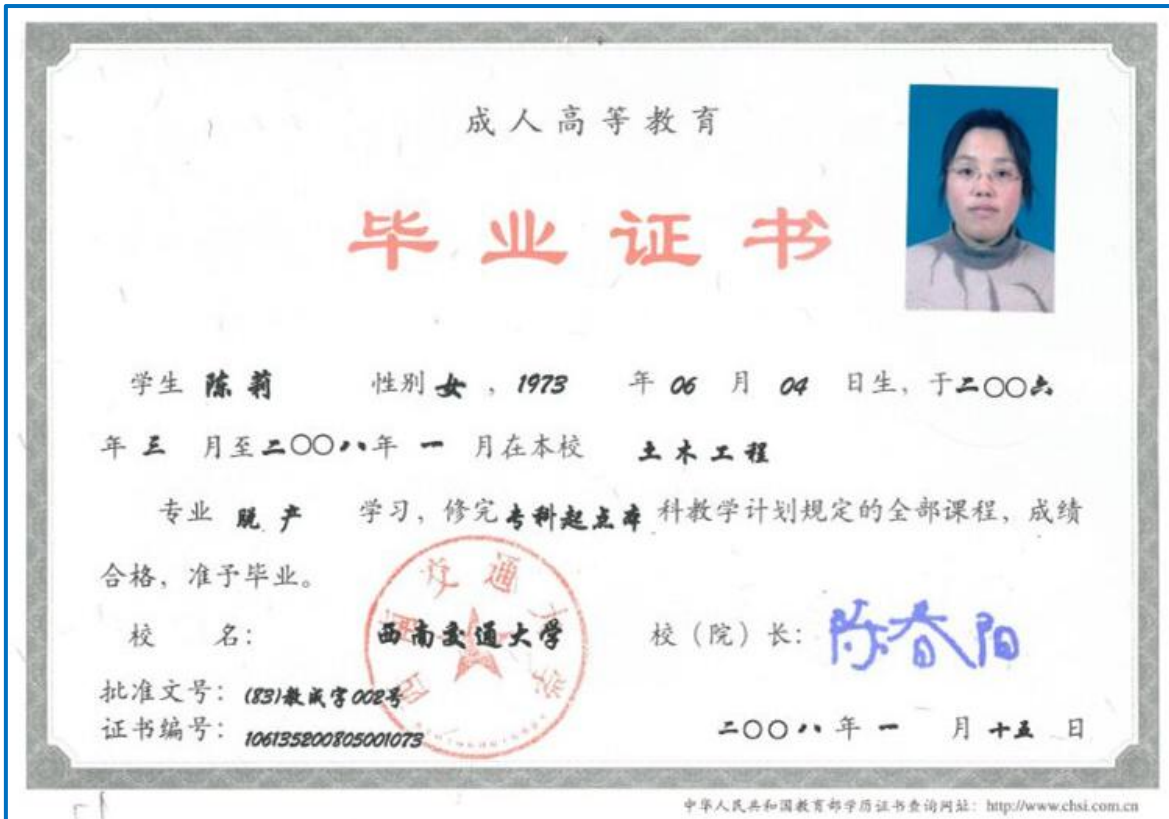 成人高等教育
毕业证书
学生 陈莉 性别 女 ，1973 年 06 月 04 日生，于二〇〇六
年 三 月至二〇〇八年 一 月在本校 土木工程
专业 脱产 学习，修完专科起点本 科教学计划规定的全部课程，成绩
合格，准予毕业。
校 名： 西南交通大学 校（院）长：陈春阳
西南交通大学
批准文号：(83)教成字002号
证书编号：106135200805001073 二〇〇八年 一 月 十五 日
中华人民共和国教育部学历证书查询网址：http://www.chsi.com.cn